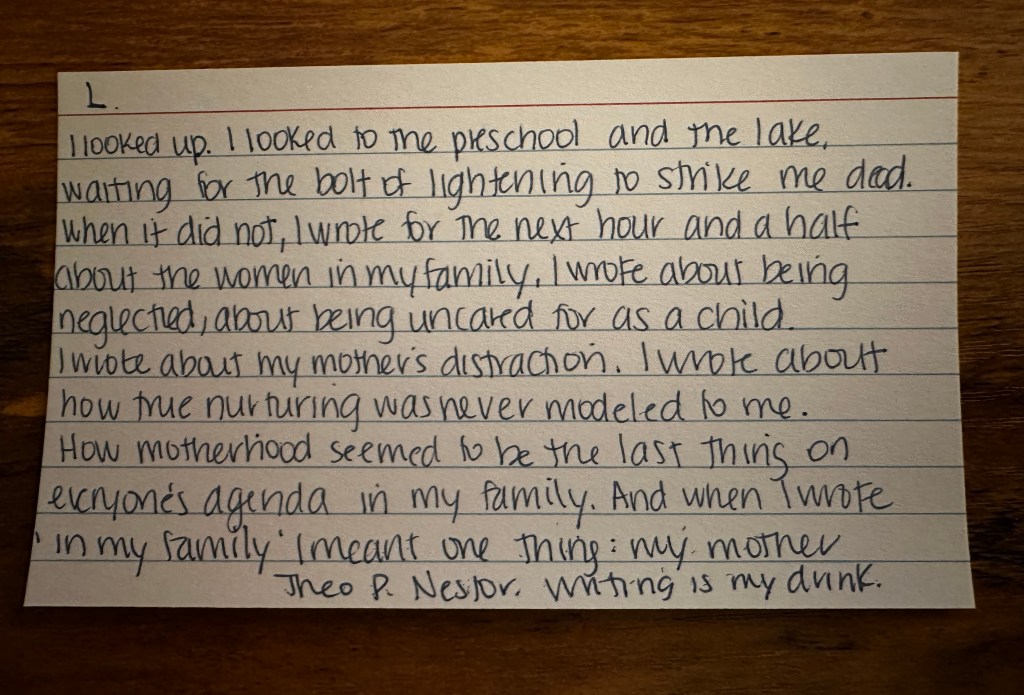 L.
I looked up. I looked to the preschool and the lake,
waiting for the bolt of lightening to strike me dead.
When it did not, I wrote for the next hour and a half
about the women in my family. I wrote about being
neglected, about being uncared for as a child.
I wrote about my mother's distraction. I wrote about
how true nurturing was never modeled to me.
How motherhood seemed to be the last thing on
everyone's agenda in my family. And when I wrote
'in my family' I meant one thing: my mother
Theo P. Nestor. Writing is my drink.